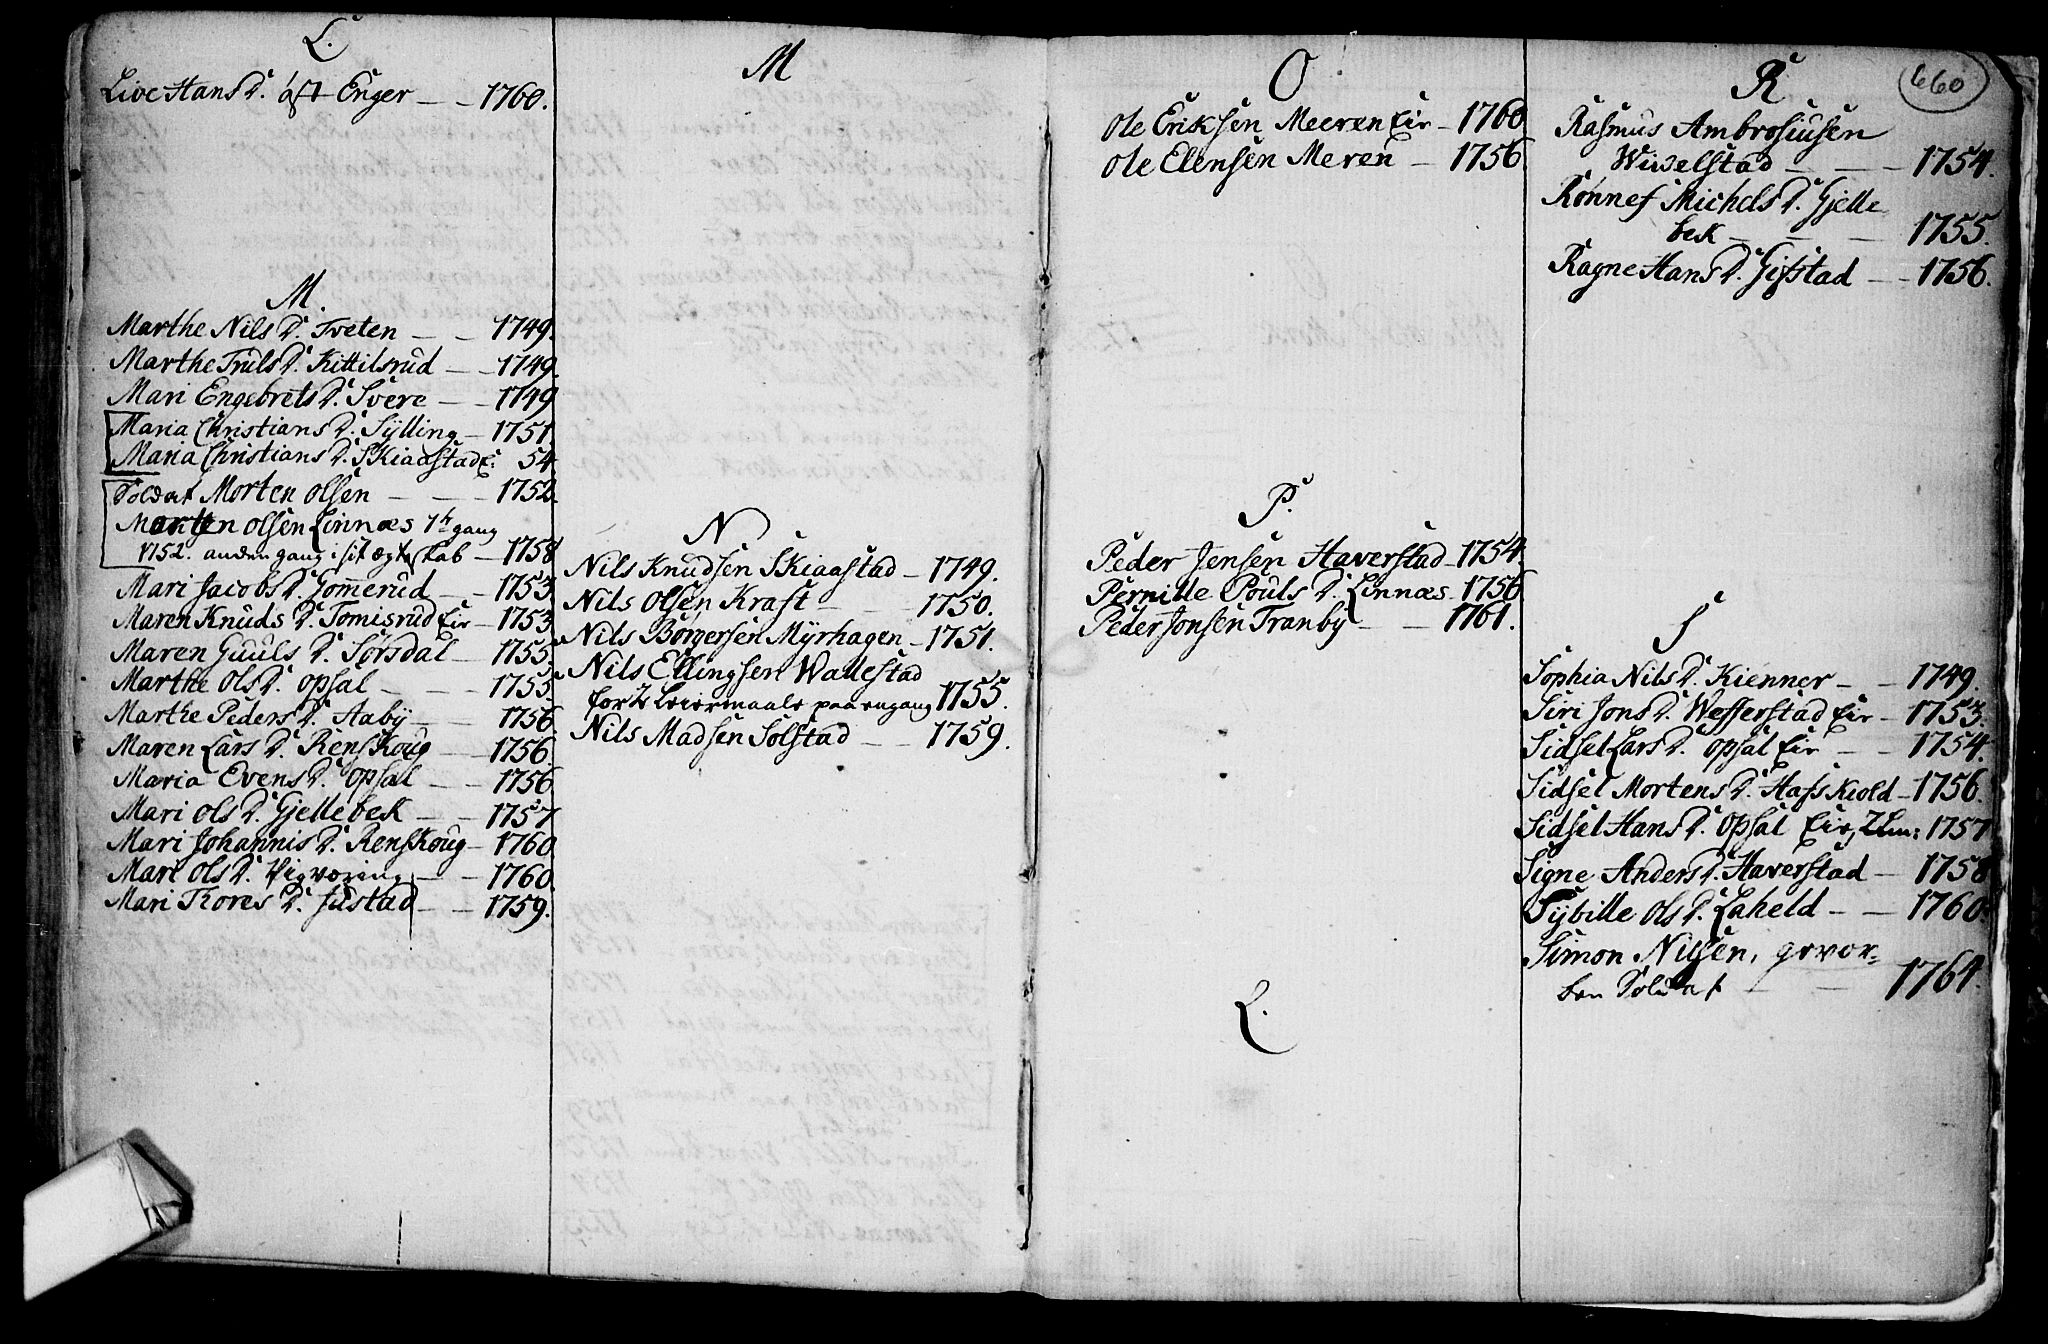 L.
Live Hans D. øst Enger — — 1760.
M.
Marthe Nils D. Tveten — — 1749.
Marthe Truls D. Kittilsrud — — 1749.
Mari Engebrets D. Svere — — 1749
Maria Christians D. Sylling — 1751.
Maria Christians D. Skiaastad E: 54.
Soldat Morten Olsen — — — 1752.
Morten Olsen Linnæs 1te gang
1752. anden gang i sit ægteskab — 1758
Mari Jacobs D. Gommerud — — 1753.
Maren Knuds D. Tomisrud Eir — 1753
Maren Guuls D. Sørsdal — 1755.
Marthe Ols D. Opsal — — — 1755.
Marthe Peders D. Aaby — — 1756
Maren Lars D. Renskoug — — 1756.
Maria Evens D. Opsal — — 1756
Mari Ols D. Gjellebek — — 1757
Mari Johannis D. Renskoug — 1760
Mari Ols D. Vigværing — — 1760.
Mari Thores D. Justad — — 1759.
M
N
Nils Knudsen Skiaastad — 1749.
Nils Olsen Kraft — — — 1750.
Nils Børgersen Myrhagen — 1751.
Nils Ellingsen Wallestad
for 2 Leiermaale paa engang 1755.
Nils Madsen Solstad — — 1759.
O
Ole Eriksen Meeren Eir — 1760
Ole Elensen Meren — 1756
P.
Peder Jensen Haverstad — 1754.
Pernille Pouls D. Linnæs — 1756
Peder Jonsen Tranby — — 1761.
L.
660
R
Rasmus Ambrosiusen
Wivelstad — — — 1754.
Rønnef Michels D. Gjelle
bek — — — 1755.
Ragne Hans D. Gifstad — — 1756.
S
Sophia Nils D. Kienner — — 1749.
Siri Jons D. Wefferstad Eir — 1753.
Sidsel Lars D. Opsal Eir — — 1754.
Sidsel Mortens D. Hafskiold — 1756.
Sidsel Hans D. Opsal Eir, 2 Lm: 1757
Signe Anders D. Haverstad — 1758
Sybille Ols D. Laheld — — 1760.
Simon Nilsen, gevor=
ben Soldat — — 1761.